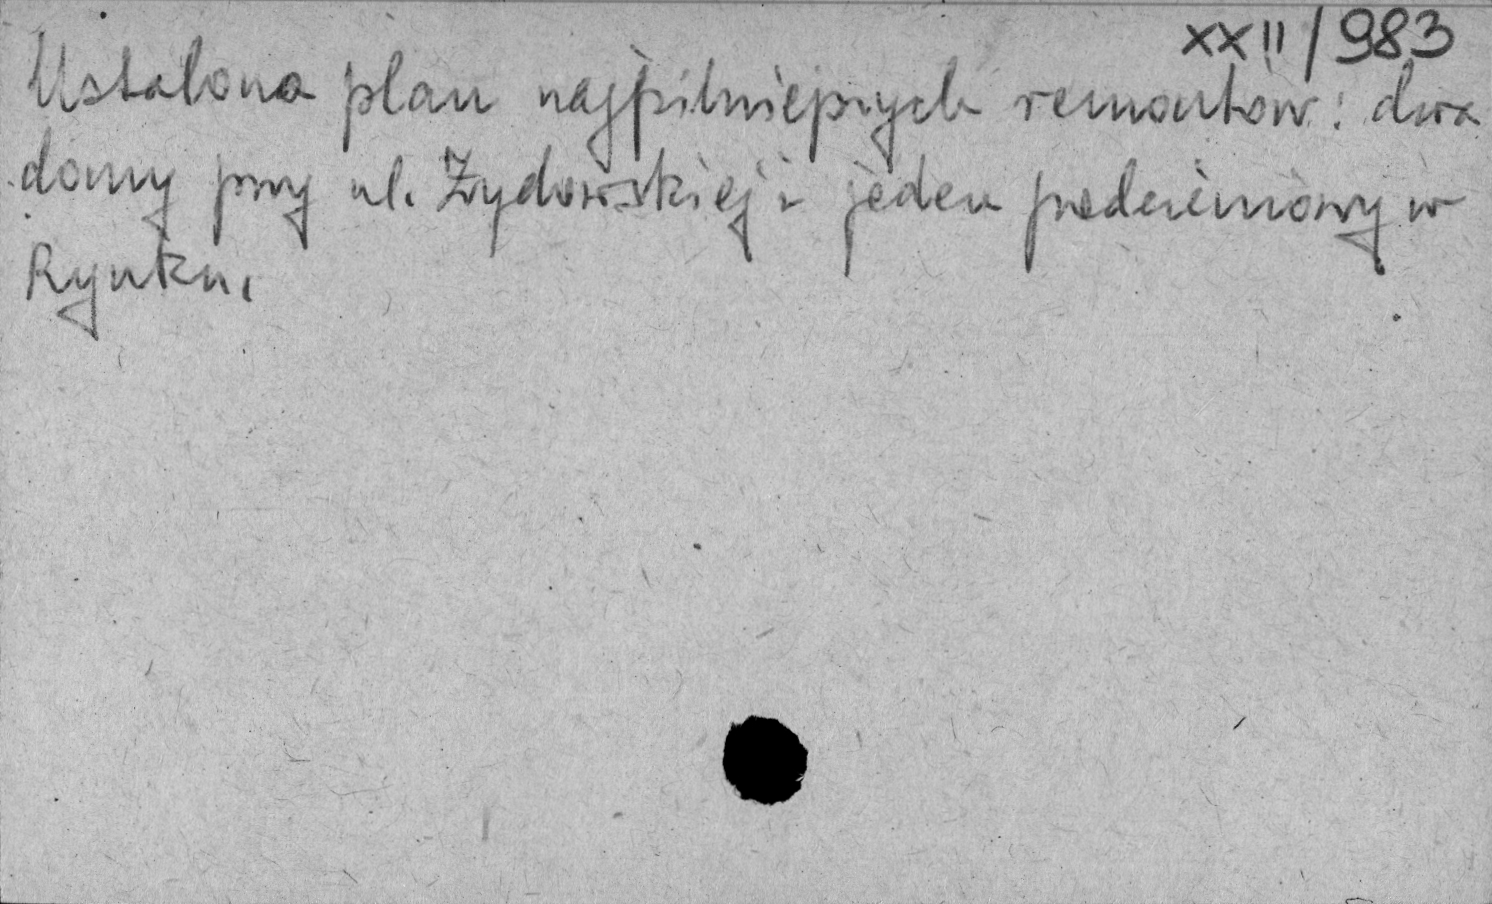 XXII/983
Ustalono plan najpilniejszych remontów: dwa
domy przy ul. Żydowskiej i jeden podcieniowy w
Rynku.